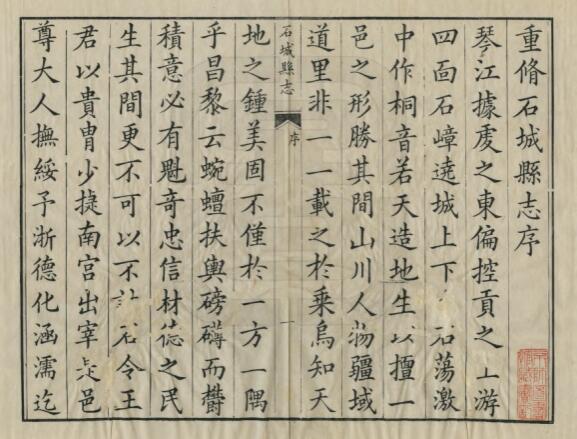 重脩石城縣志序
琴江據虔之東偏控貢之上游
四面石嶂遶城上下石蕩激
中作桐音若天造地生以擅一
邑之形勝其間山川人物疆域
道里非一一載之於乘烏知天
石城縣志
序
一
地之鍾美固不僅於一方一隅
乎昌黎云蜿蟺扶輿磅礴而鬱
積意必有魁竒忠信材德之民
生其間更不可以不計石令王
君以貴胄少捷南宮出宰是邑
尊大人撫綏予浙德化涵濡迄